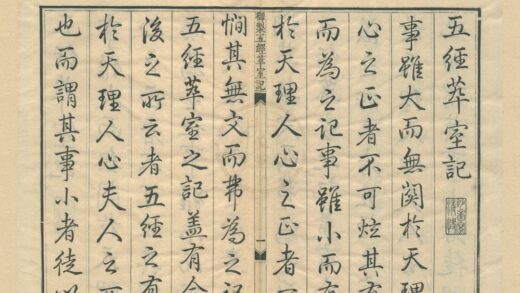 五經萃室記
事雖大而無關於天理
心之正者不可炫其有
而為之記事雖小而有
於天理人心之正者
御製五經萃室記
一
憫其無文而弗為之記
五經萃室之記蓋有今
後之所云者五經之有
於天理人心夫人之所
也而謂其事小者徒以